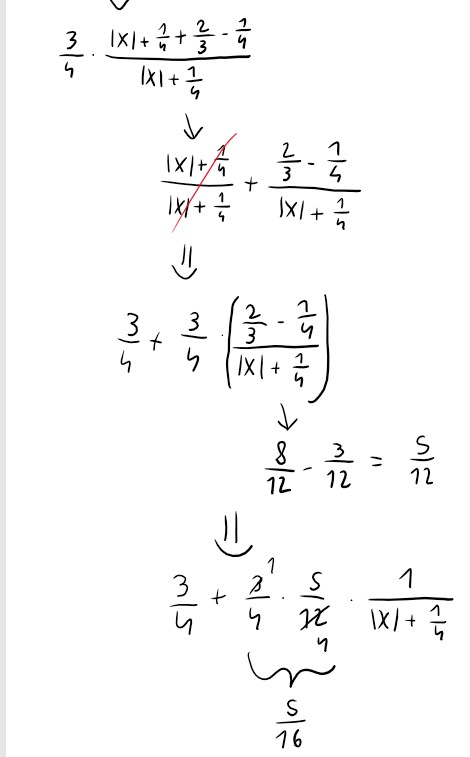 3/4 · (|X| + 1/4 + 2/3 - 1/4)/(|X| + 1/4)
↓
(|X| + 1/4)/(|X| + 1/4) + (2/3 - 1/4)/(|X| + 1/4)
⇓
3/4 + 3/4 · ((2/3 - 1/4)/(|X| + 1/4))
↓
8/12 - 3/12 = 5/12
⇓
3/4 + 3/4 1 · 5/12 4 · 1/(|X| + 1/4)
5/16